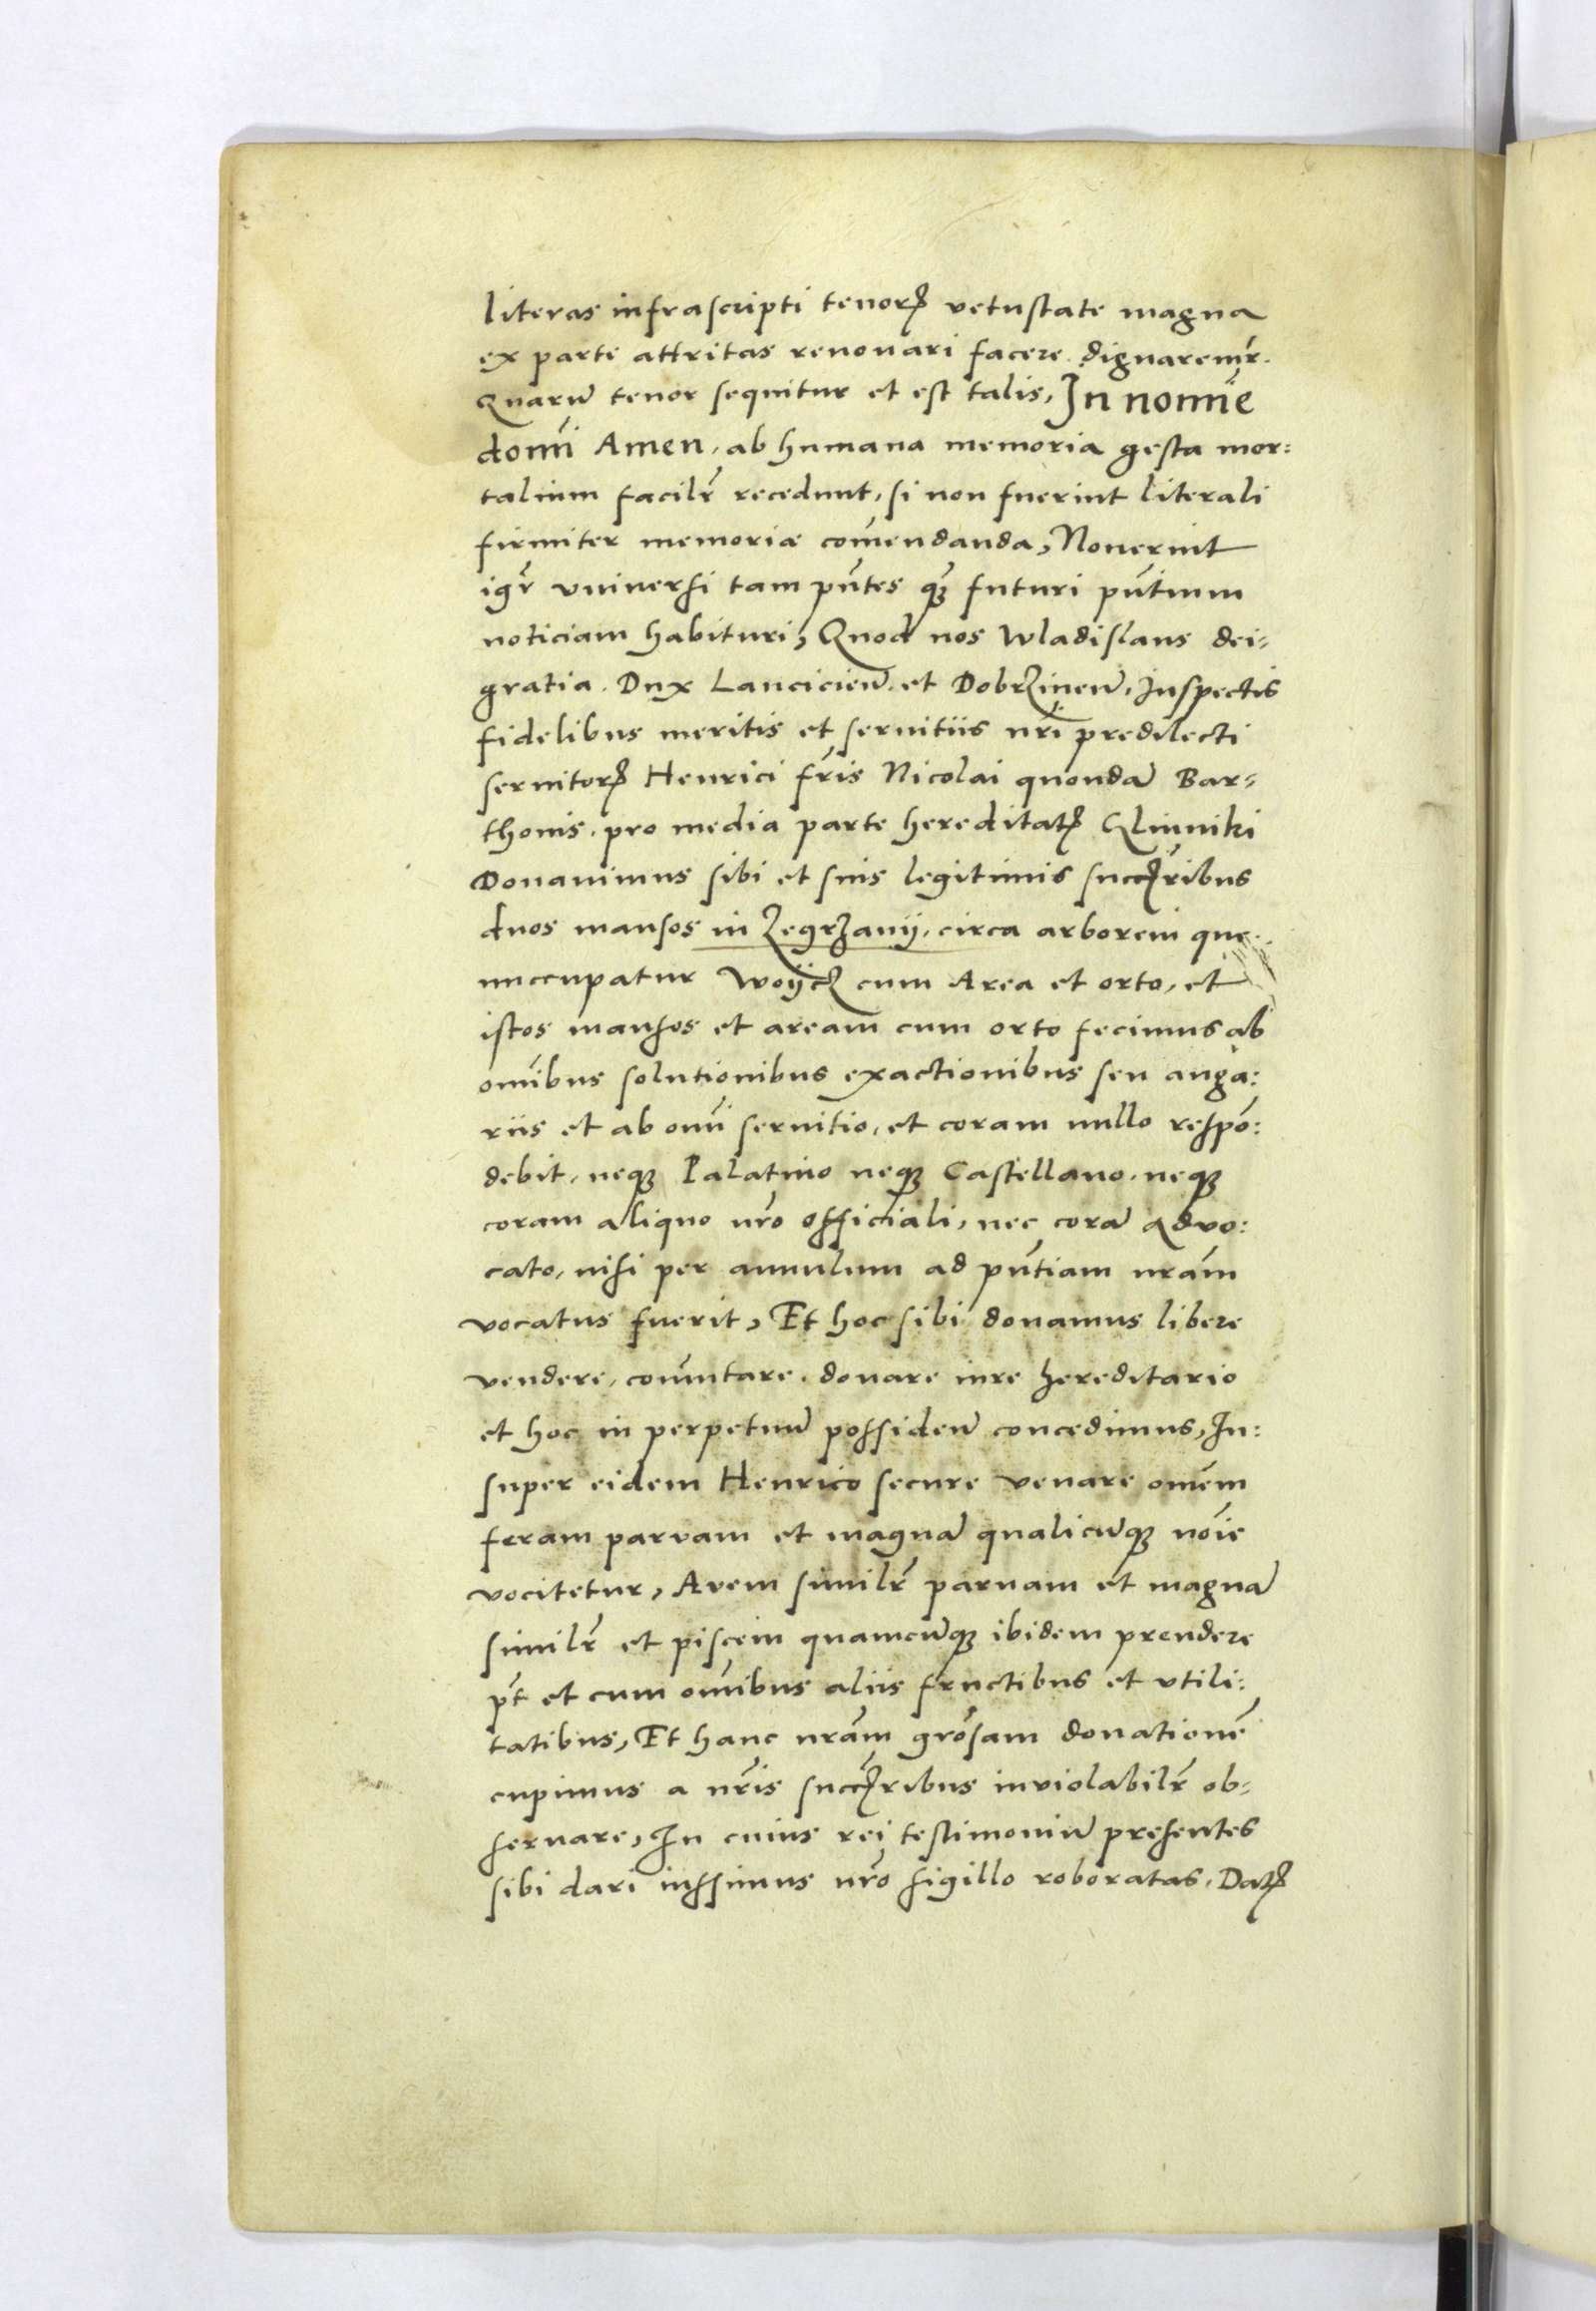 literas infrascripti tenorꝭ vetustate magna
ex parte attritas renovari facere dignaremr̄.
Quarū tenor sequitur et est talis, In nomīe
domī Amen, ab humana memoria gesta mor:
talium facilr̄ recedunt, si non fuerint literali
firmiter memoriæ com̄endanda, Noverint
igr̄ universi tam pn̄tes qꝫ futuri pn̄tium
noticiam habituri, Quod nos Wladislaus dei-
gratia. Dux Lancicieñ. et Dobrzineñ, Inspectis
fidelibus meritis et servitiis nr̄i predilecti
servitorꝭ Henrici fr̄is Nicolai quondā Bar-
thonis. pro media parte hereditatꝭ Qlinniki
Donavimus sibi et suis legitimis succꝭribus
duos mansos in Zegrzanÿ, circa arborem que
nuccupatur Woÿcz cum Area et orto, et
istos mansos et aream cum orto fecimus ab
om̄ibus solutionibus exactionibus seu anga:
riis et ab om̄i servitio, et coram nullo respō:
debit, neqꝫ Palatino neqꝫ Castellano. neqꝫ
coram aliquo nr̄o officiali, nec corā advo:
cato, nisi per annulum ad pn̄tiam nr̄am
vocatus fuerit, Et hoc sibi donamus libere
vendere, com̄utare. donare iure hereditario
et hoc in perpetuū possideñ concedimus, In:
super eidem Henrico secure venare om̄em
feram parvam et magnā qualicūqꝫ nōie
vocitetur, Avem similr̄ parvam et magnā
similr̄ et piscem quamcūqꝫ ibidem prendere
pt̄ et cum om̄ibus aliis fructibus et utili:
tatibus, Et hanc nr̄am grōsam donationē
cupimus a nr̄is succꝭribus inviolabilr̄ ob-
servare, In cuius rei testimoniū presentes
sibi dari iussimus nr̄o sigillo roboratas. Datꝭ